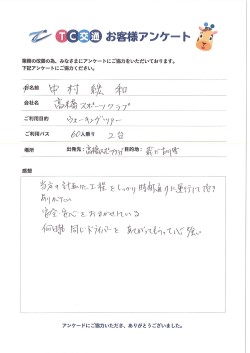 TC交通 お客様アンケート
業務の改善の為、みなさまにアンケートにご協力をいただいております。
下記アンケートにご協力ください。
お名前 中村 総和
会社名 高橋スポーツクラブ
ご利用目的 ウォーキングツアー
ご利用バス 60人乗り 2台
場所 出発先:高橋スポーツクラブ 目的地:
感想
当方の計画した工程をしっかり時間通りに運行して頂き
ありがたい
安全・安心をおまかせしている
何回も同じドライバーをあてがってもらって心強い
アンケートにご協力いただき、ありがとうございました。